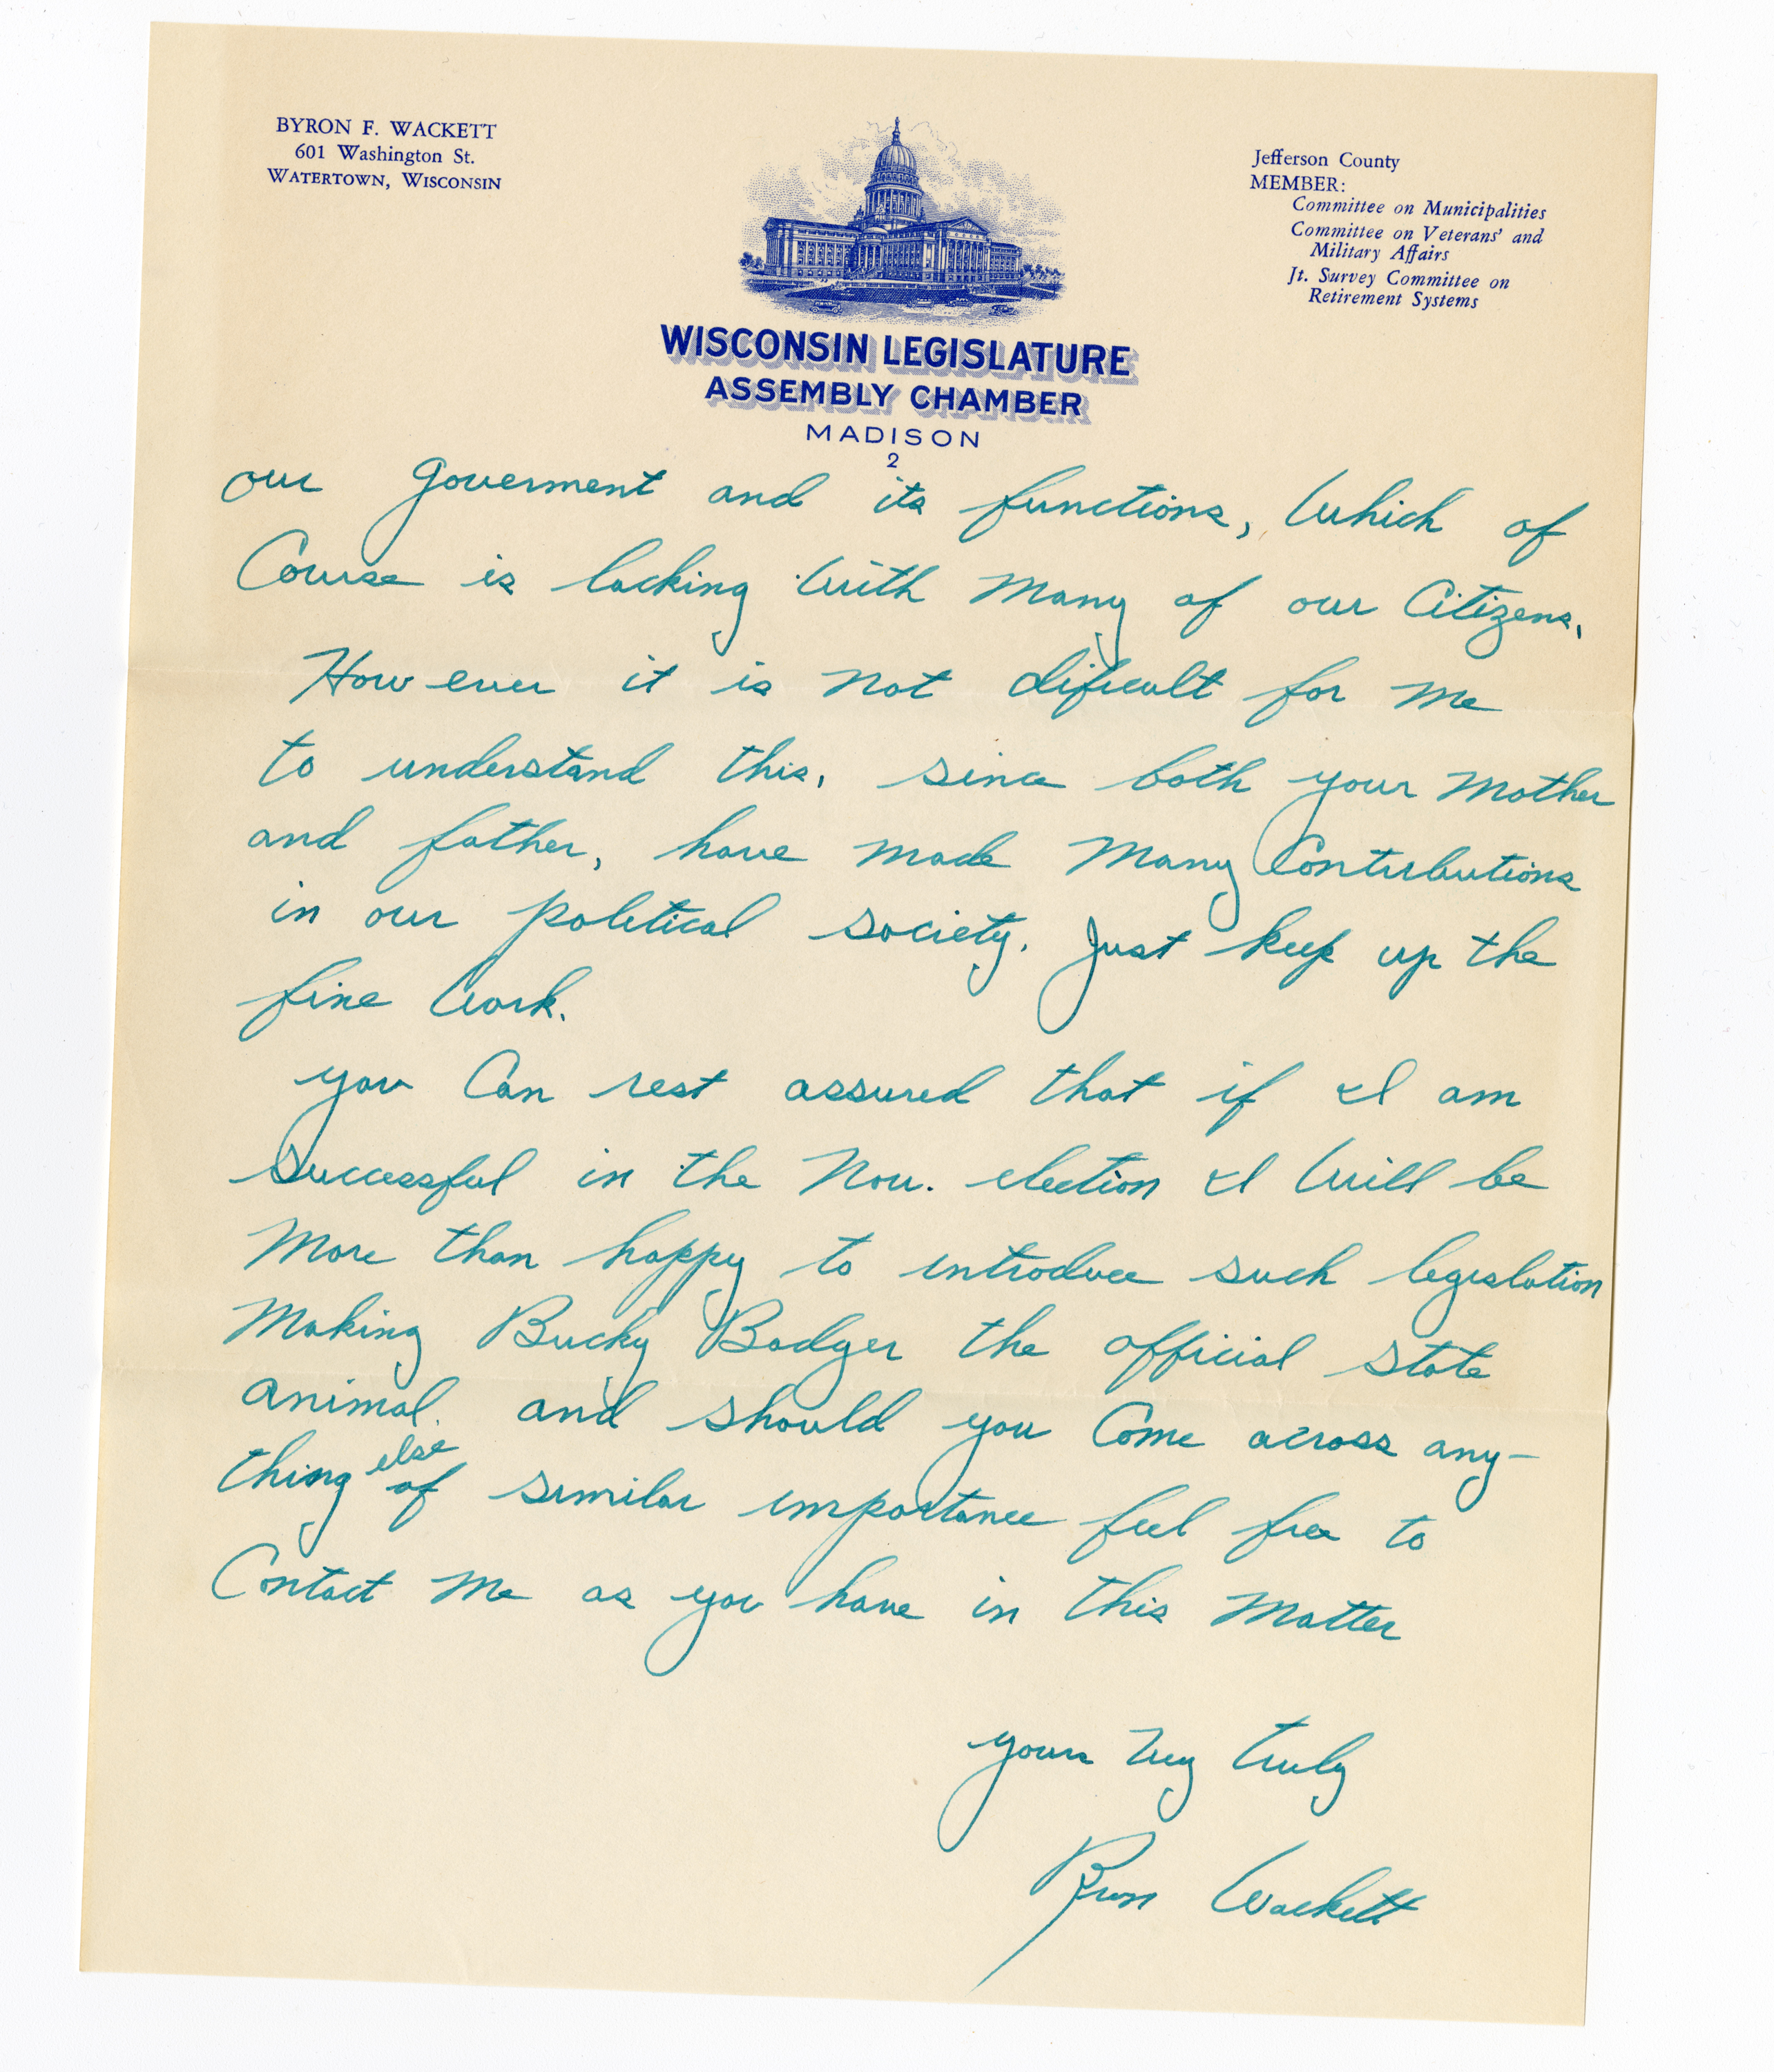 BYRON F. WACKETT
601 Washington St.
WATERTOWN, WISCONSIN
Jefferson County
MEMBER:
Committee on Municipalities
Committee on Veterans' and
Military Affairs
Jt. Survey Committee on
Retirement Systems
WISCONSIN LEGISLATURE
ASSEMBLY CHAMBER
MADISON
2
our Goverment and its functions, Which of
Course is lacking With Many of our Citizens.
However it is not dificult for me
to understand this, since both your Mother
and father, have made Many Contributions
in our political society. Just keep up the
fine Work.
you Can rest assured that if I am
Successful in the Nov. election I Will be
More than happy to introduce such legislation
Making Bucky Badger the official state
animal. and should you Come across any-
thing else of similar importance feel free to
Contact Me as you have in this Matter
yours Very truly
Byron Wackett